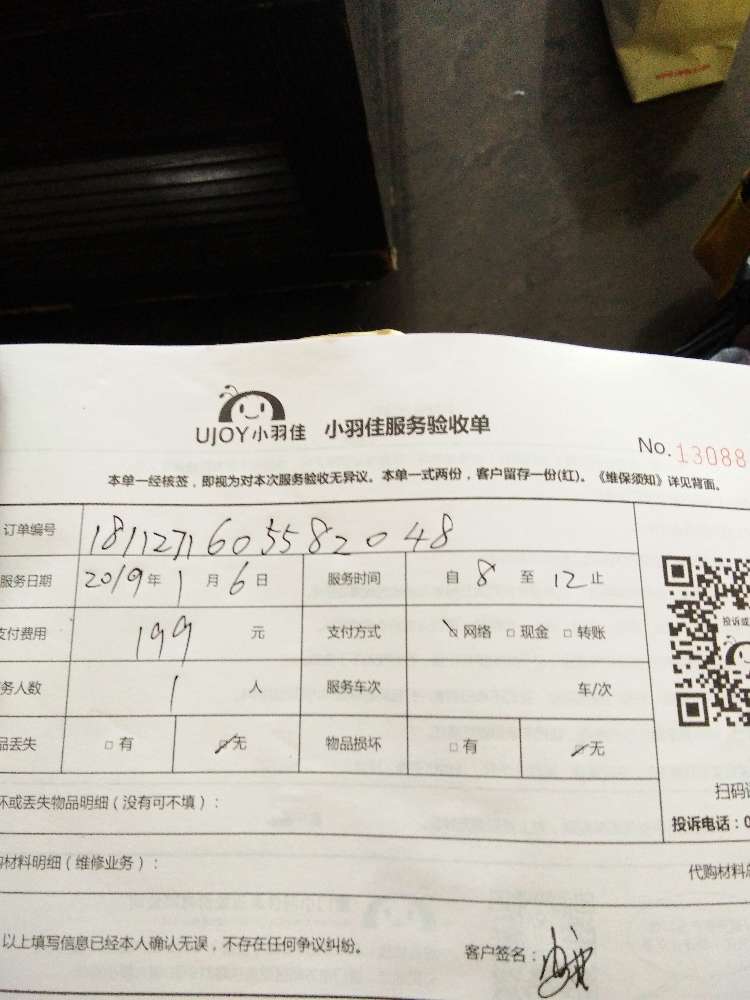 UJOY小羽佳 小羽佳服务验收单
No.13088
本单一经核签，即视为对本次服务验收无异议。本单一式两份，客户留存一份(红)。《维保须知》详见背面。
订单编号 1811271605582048
服务日期 2019年1月6日 服务时间 自8至12止
支付费用 199元 支付方式 网络 □现金 □转账
务人数 1人 服务车次 车/次
品丢失 □有 □无 物品损坏 □有 □无
投诉或
坏或丢失物品明细（没有可不填）：
扫码
投诉电话：0
购材料明细（维修业务）：
代购材料总
以上填写信息已经本人确认无误，不存在任何争议纠纷。
客户签名：